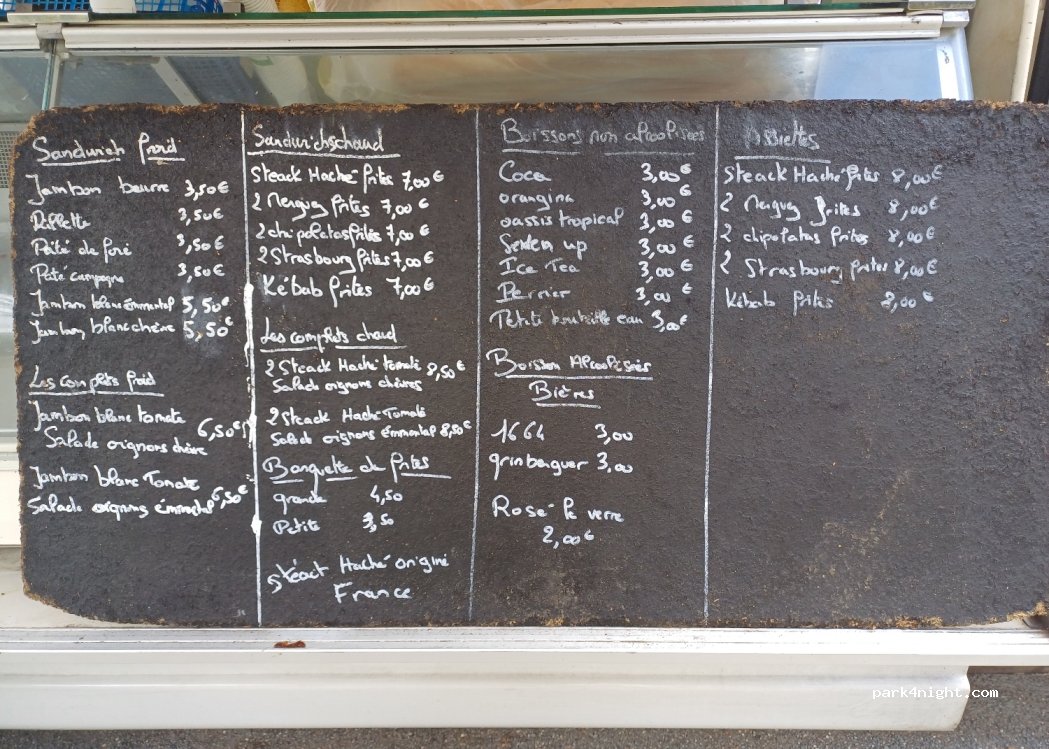 Sandwich froid
Jambon beurre 3,50€
Riflette 3,50€
Pâté de foie 3,50€
Pâté campagne 3,50€
Jambon blanc émmental 5,50€
Jambon blanc chèvre 5,50€
Les complets froid
Jambon blanc tomate
Salade oignons chèvre 6,50€
Jambon blanc Tomate
Salade oignons émmental 6,50€
Sandwichs chaud
Steack Haché frites 7,00€
2 Merguez frites 7,00€
2 chipolatas frites 7,00€
2 Strasbourg frites 7,00€
Kébab frites 7,00€
Les complets chaud
2 Steack Haché tomate 8,50€
Salade oignons chèvres
2 Steack Haché Tomate
Salade oignons émmental 8,50€
Barquette de frites
grande 4,50
Petite 3,50
stéact Haché origine
France
Boissons non alcoolisées
Coca 3,00€
orangina 3,00€
oassis tropical 3,00€
Seven up 3,00€
Ice Tea 3,00€
Perrier 3,00€
Petite bouteille eau 3,00€
Boisson Alcoolisées
Bières
1664 3,00
grinberguer 3,00
Rosé le verre
2,00€
Assiettes
Steack Haché frites 8,00€
2 Merguez frites 8,00€
2 chipolatas frites 8,00€
2 Strasbourg frites 8,00€
Kébab frites 8,00€
park4night.com